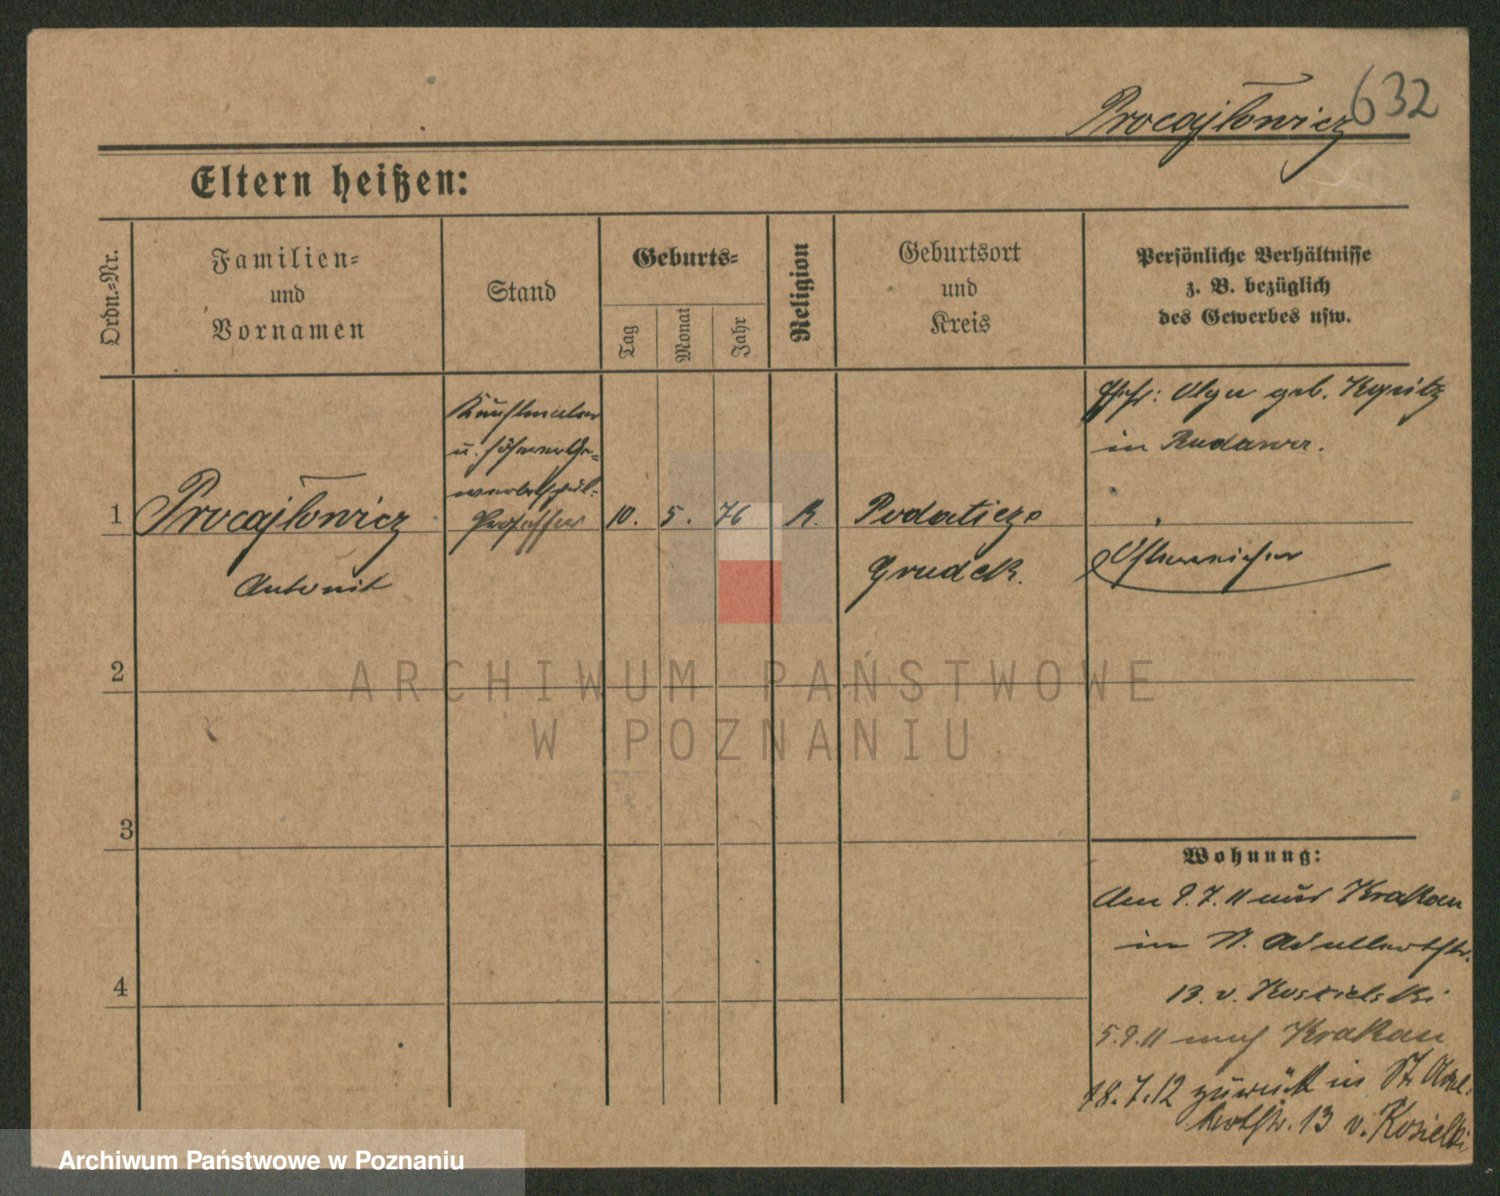 632
Procajłowicz
Eltern heißen:
Ordn.-Nr.
Familien-
und
Vornamen
Stand
Geburts-
Tag
Monat
Jahr
Religion
Geburtsort
und
Kreis
Persönliche Verhältnisse
z. B. bezüglich
des Gewerbes usw.
1
Procajłowicz
Antonit
Kunstmaler
u. höherer Ge-
werbeschul-
Professor
10. 5. 76
R.
Podaticze
Grudek.
Ehefr: Olga geb.
in Rudawa.
Österreicher
2
3
4
Wohnung:
Am 9.7.11 aus Krakau
in St. Adalbertstr.
13 v. Koszielski
5.9.11 nach Krakau
18.7.12 zurück in St. Adal-
bertstr. 13 v. Kosielski
ARCHIWUM PAŃSTWOWE
W POZNANIU
Archiwum Państwowe w Poznaniu